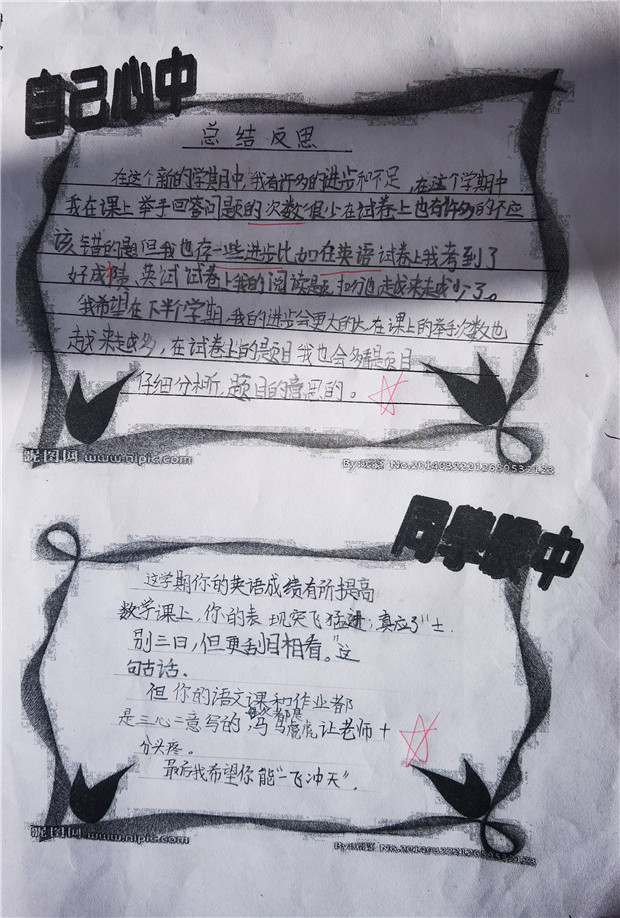 自己心中
总结反思
在这个新的学期中,我有许多的进步和不足,在这个学期中
我在课上举手回答问题的次数很少在试卷上也有许多的不应
该错的题但我也存一些进步比如在英语试卷上我考到了
好成绩、英试试卷上我的阅读题扣分也越来越少了。
我希望在下半个学期,我的进步会更大的大,在课上的举手次数也
越来越多,在试卷上的题目我也会多题目
仔细分析,题目的意思的。
昵图网 www.nipic.com
同学眼中
这学期你的英语成绩有所提高
数学课上,你的表现突飞猛进,真应了“士
别三日,但更刮目相看。”这
句古话.
但你的语文课和作业都
是三心二意写的,马马虎虎让老师十
分头疼。
最后我希望你能“一飞冲天”.
昵图网 www.nipic.com